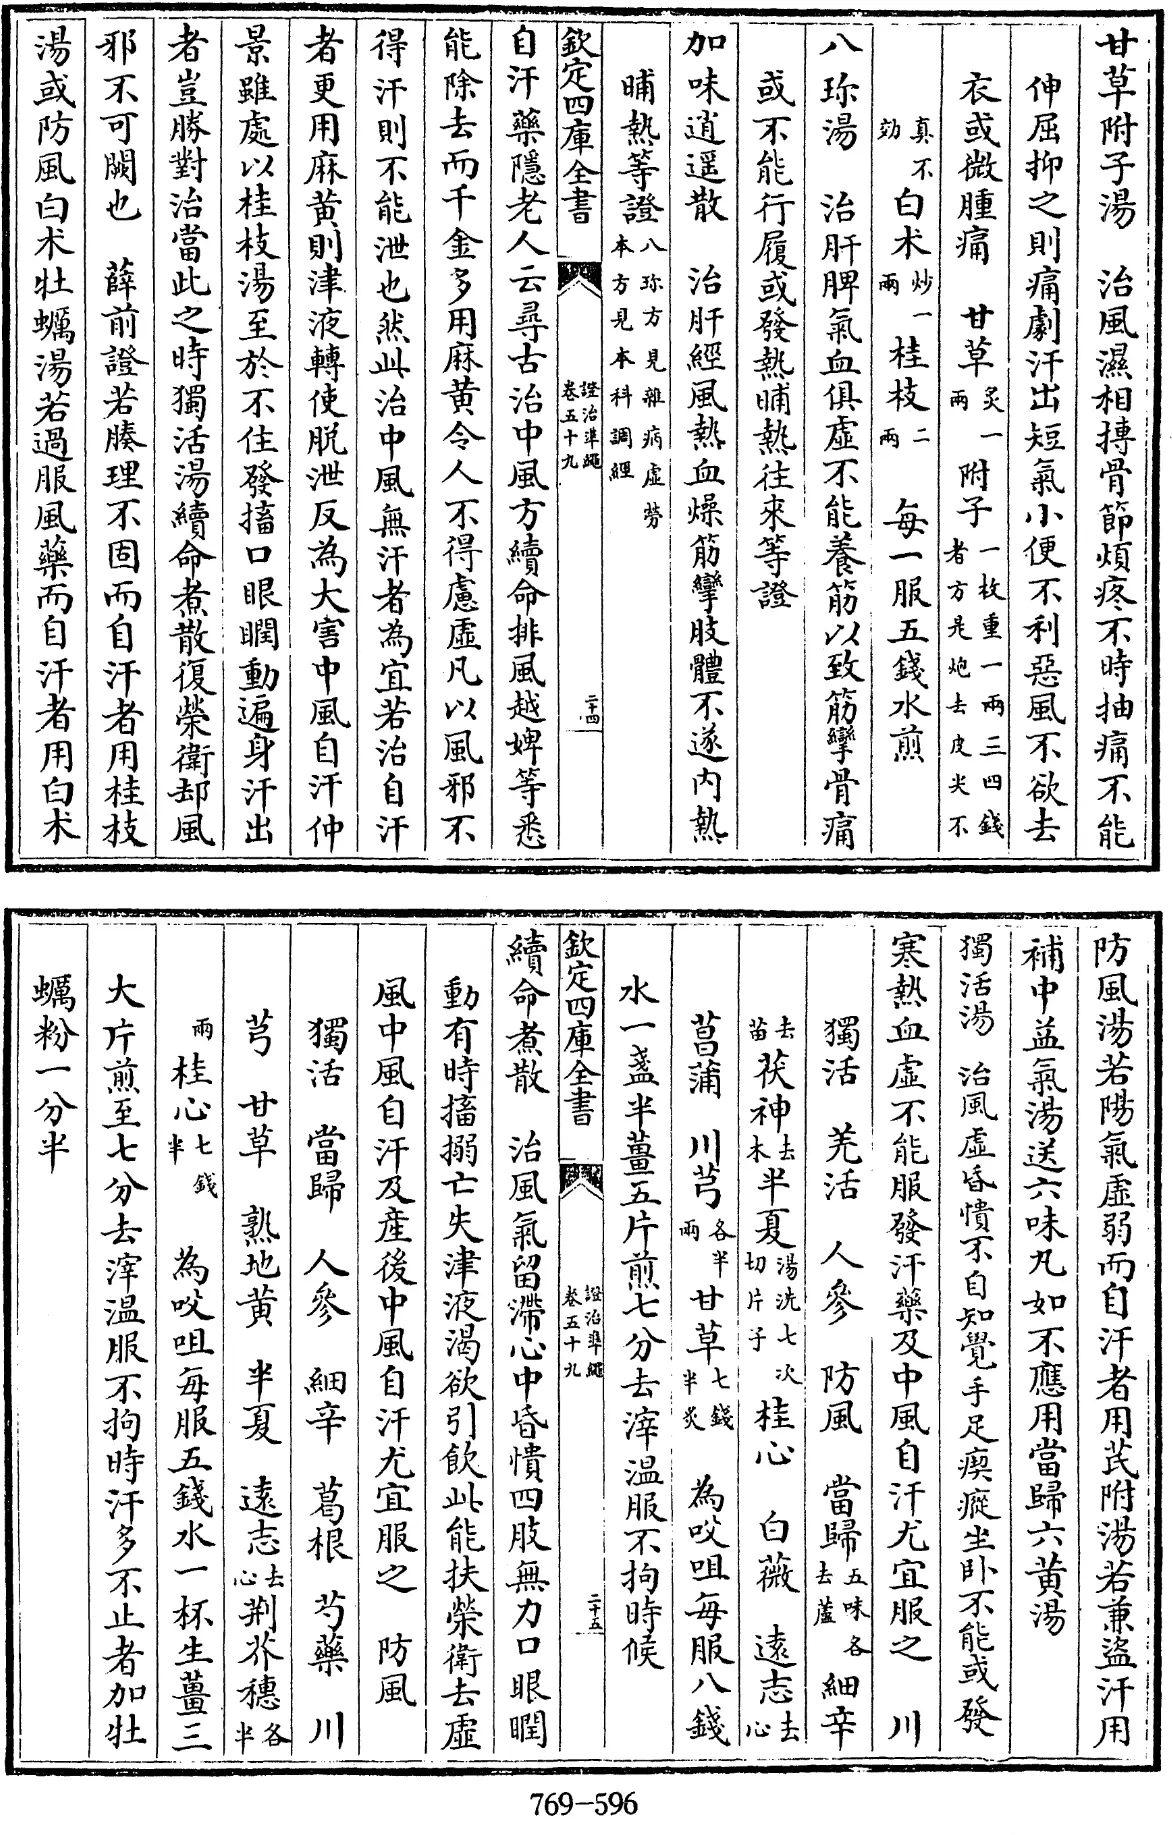 甘草附子湯　治風濕相摶骨節煩疼不時抽痛不能
伸屈抑之則痛劇汗出短氣小便不利惡風不欲去
衣或微腫痛　甘草炙一兩　附子一枚重一兩三四錢者方是炮去皮尖不
真不効　白术炒一兩　桂枝二兩　每一服五錢水煎
八珍湯　治肝脾氣血俱虛不能養筋以致筋攣骨痛
或不能行履或發熱晡熱往來等證
加味逍遥散　治肝經風熱血燥筋攣肢體不遂内熱
晡熱等證八珍方見雜病虛勞本方見本科調經
欽定四庫全書　證治準繩卷五十九　二十四
自汗藥隱老人云尋古治中風方續命排風越婢等悉
能除去而千金多用麻黄令人不得慮虛凡以風邪不
得汗則不能泄也然此治中風無汗者為宜若治自汗
者更用麻黄則津液轉使脱泄反為大害中風自汗仲
景雖處以桂枝湯至於不住發搐口眼瞤動遍身汗出
者豈勝對治當此之時獨活湯續命煮散復榮衛却風
邪不可闕也　薛前證若腠理不固而自汗者用桂枝
湯或防風白术牡蠣湯若過服風藥而自汗者用白术
防風湯若陽氣虛弱而自汗者用芪附湯若兼盜汗用
補中益氣湯送六味丸如不應用當歸六黄湯
獨活湯　治風虛昏憒不自知覺手足瘈瘲坐卧不能或發
寒熱血虛不能服發汗藥及中風自汗尤宜服之　川
獨活　羌活　人參　防風　當歸五味各去蘆　細辛
去苗　茯神去木　半夏湯洗七次切片子　桂心　白薇　遠志去心
菖蒲　川芎各半兩　甘草七錢半炙　為㕮咀每服八錢
水一盞半薑五片煎七分去滓温服不拘時候
欽定四庫全書　證治準繩卷五十九　二十五
續命煮散　治風氣留滯心中昏憒四肢無力口眼瞤
動有時搐搦亡失津液渴欲引飲此能扶榮衛去虛
風中風自汗及産後中風自汗尤宜服之　防風
獨活　當歸　人參　細辛　葛根　芍藥　川
芎　甘草　熟地黄　半夏　遠志去心　荆芥穗各半
兩　桂心七錢半　為㕮咀每服五錢水一杯生薑三
大片煎至七分去滓温服不拘時汗多不止者加牡
蠣粉一分半
769-596